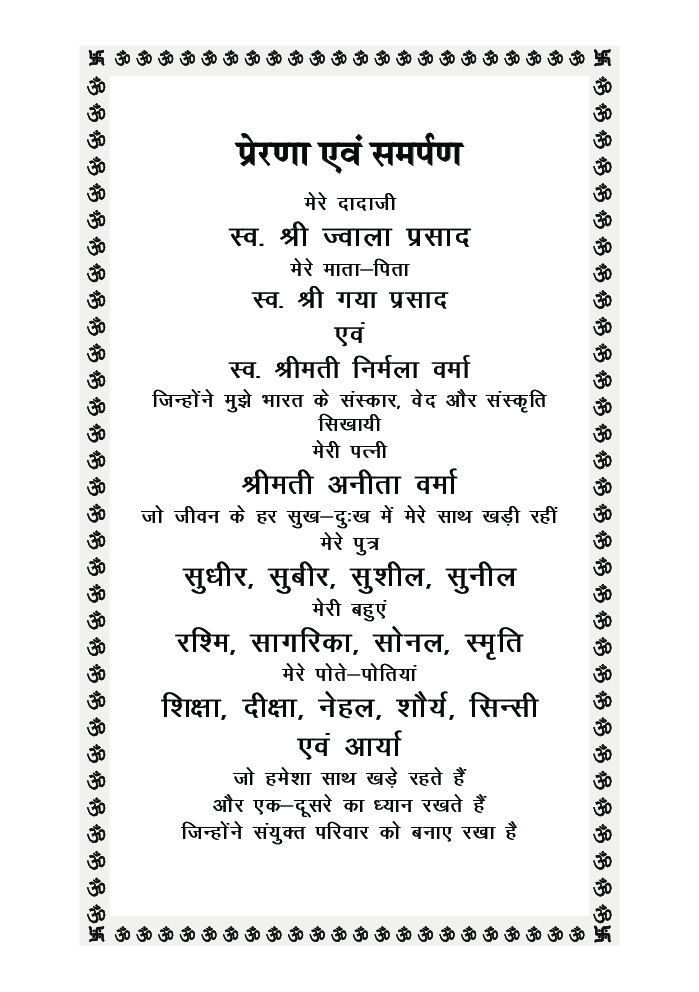 प्रेरणा एवं समर्पण
मेरे दादाजी
स्व. श्री ज्वाला प्रसाद
मेरे माता–पिता
स्व. श्री गया प्रसाद
एवं
स्व. श्रीमती निर्मला वर्मा
जिन्होंने मुझे भारत के संस्कार, वेद और संस्कृति
सिखायी
मेरी पत्नी
श्रीमती अनीता वर्मा
जो जीवन के हर सुख–दुःख में मेरे साथ खड़ी रहीं
मेरे पुत्र
सुधीर, सुबीर, सुशील, सुनील
मेरी बहुएं
रश्मि, सागरिका, सोनल, स्मृति
मेरे पोते–पोतियां
शिक्षा, दीक्षा, नेहल, शौर्य, सिन्सी
एवं आर्या
जो हमेशा साथ खड़े रहते हैं
और एक–दूसरे का ध्यान रखते हैं
जिन्होंने संयुक्त परिवार को बनाए रखा है